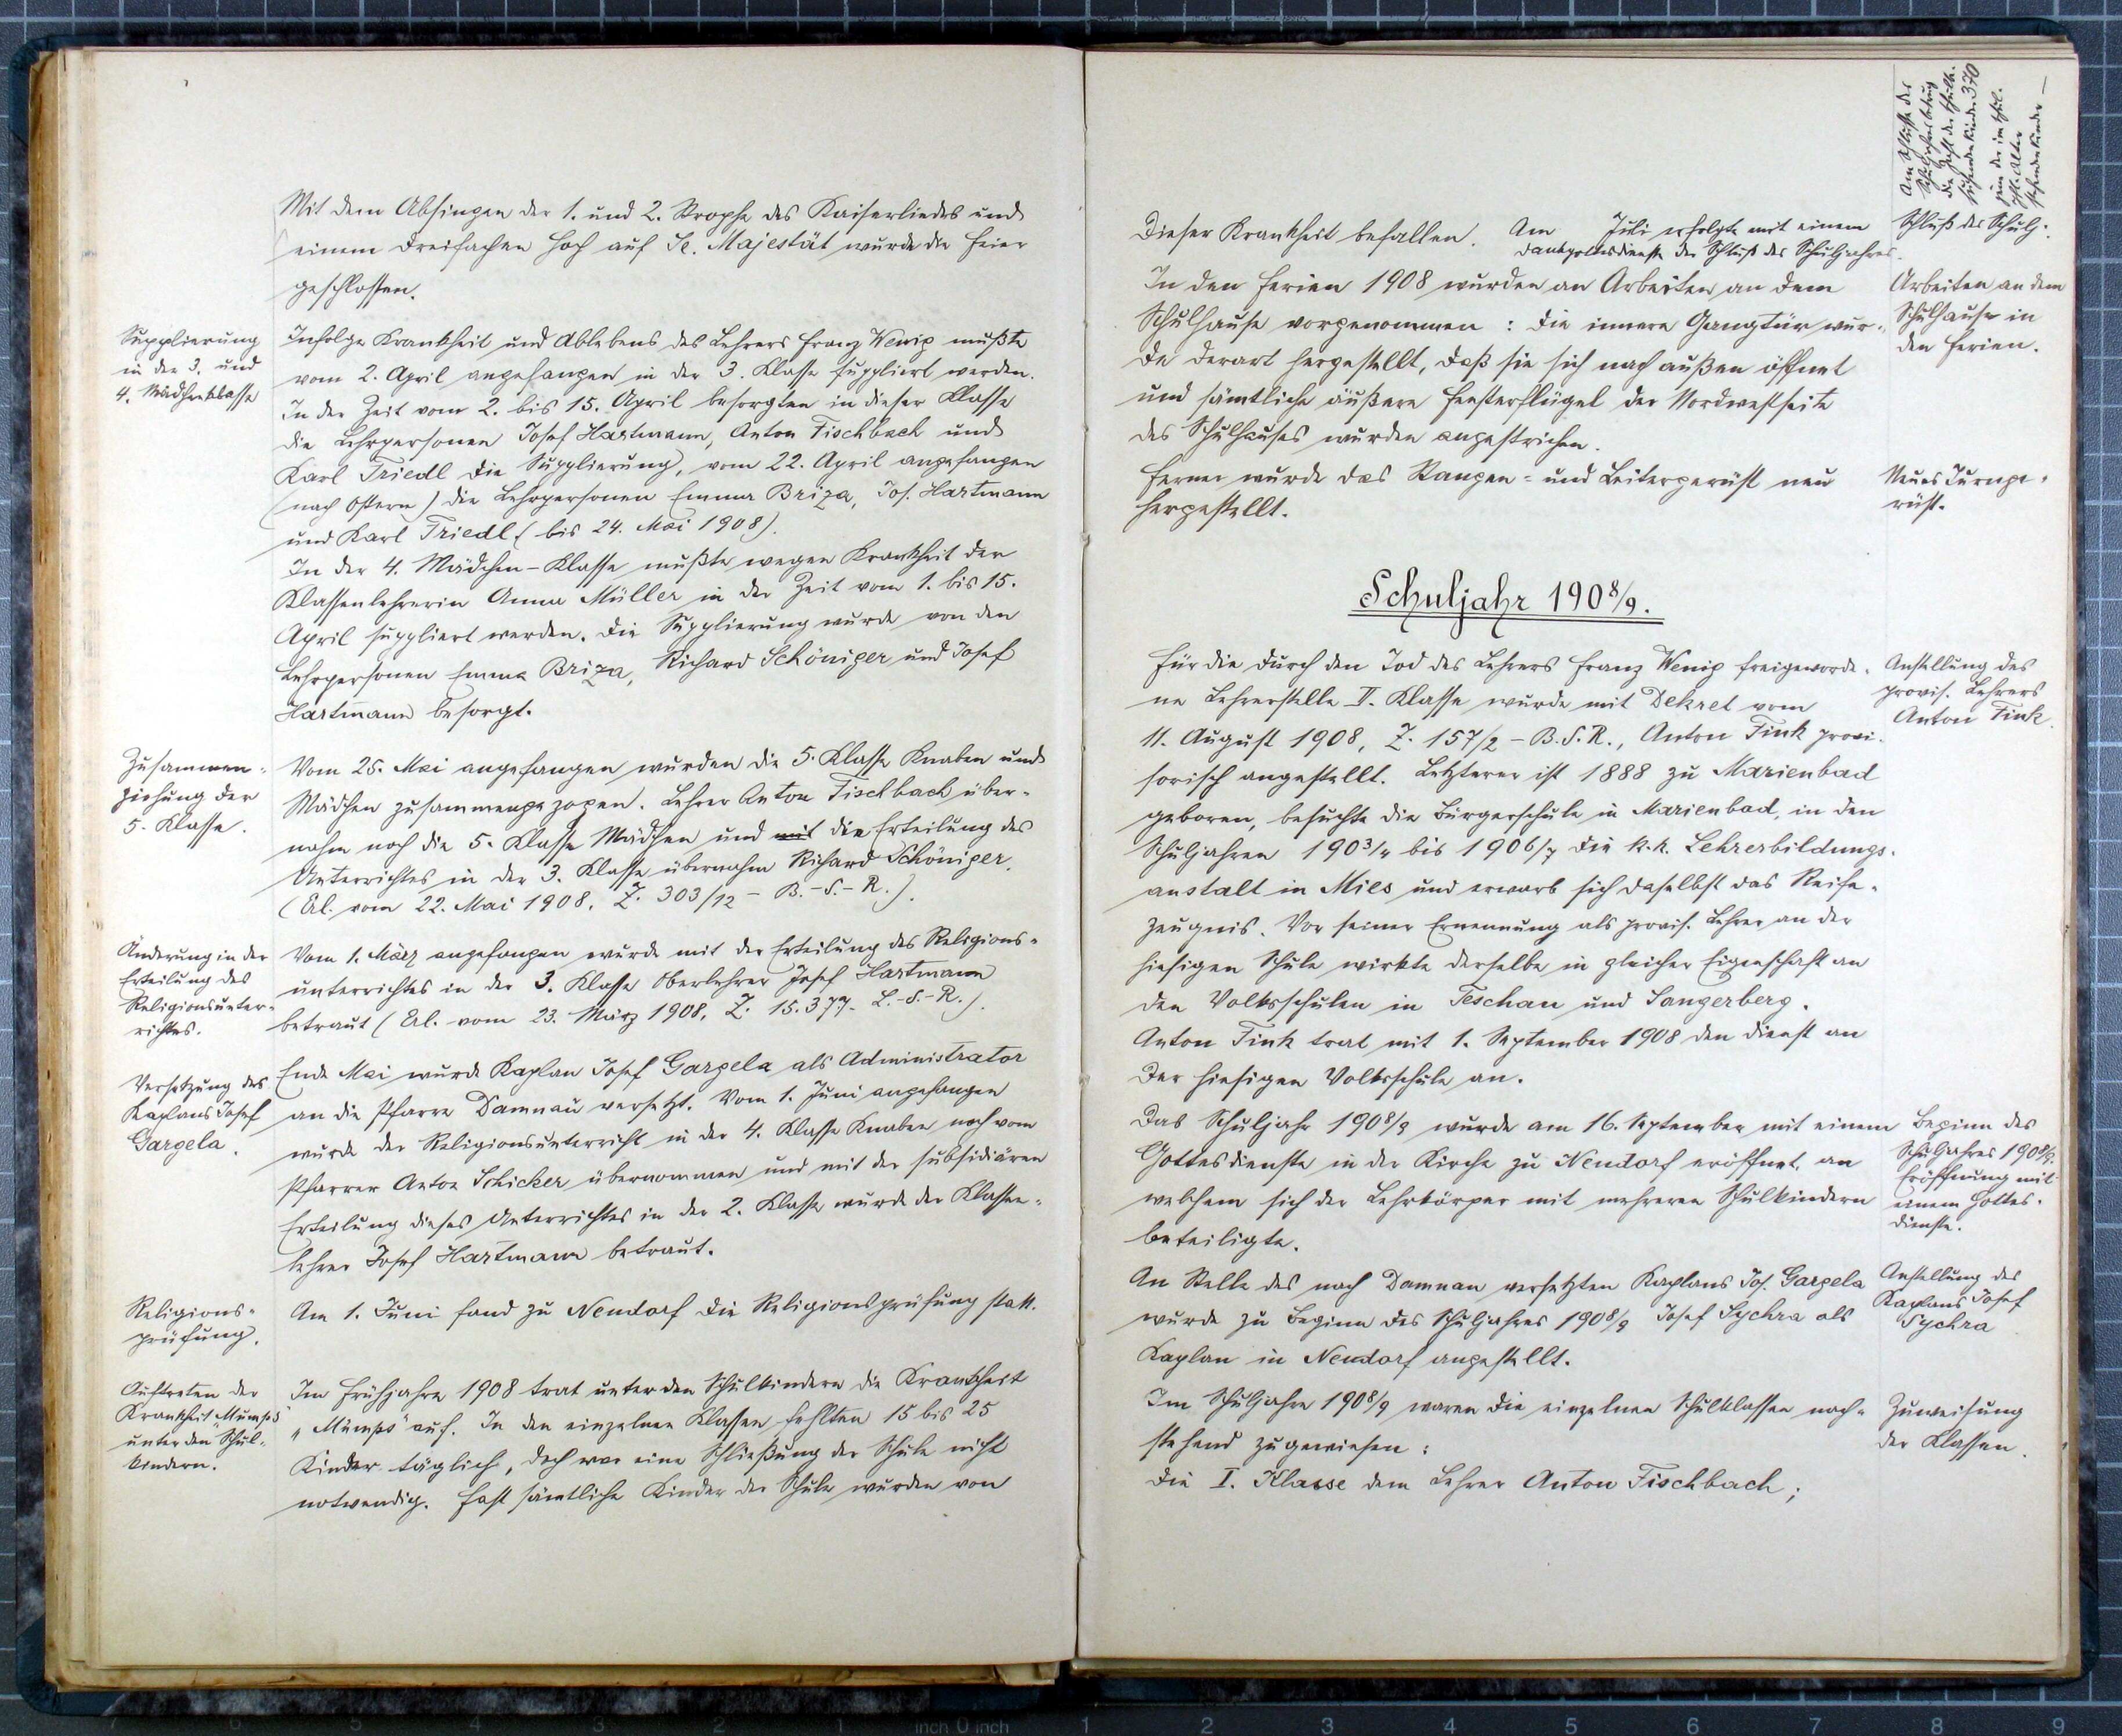 Mit dem Absingen der 1. und 2. Strophe des Kaiserliedes und
einem dreifachen Hoch auf Se. Majestät wurde die Feier
geschlossen.
Supplierung
in der 3. und
4. Mädchenklasse
Infolge Krankheit und Ablebens des Lehrers Franz Wenig mußte
vom 2. April angefangen in der 3. Klasse suppliert werden.
In der Zeit vom 2. bis 15. April besorgten in dieser Klasse
die Lehrpersonen Josef Hartmann, Anton Fischbach und
Karl Friedl die Supplierung, vom 22. April angefangen
(nach Ostern) die Lehrpersonen Emma Briza, Jos. Hartmann
und Karl Friedl (bis 24. Mai 1908).
In der 4. Mädchen-Klasse mußte wegen Krankheit der
Klassenlehrerin Anna Müller in der Zeit vom 1. bis 15.
April suppliert werden. Die Supplierung wurde von den
Lehrpersonen Emma Briza, Richard Schöniger und Josef
Hartmann besorgt.
Zusammen-
ziehung der
5. Klasse.
Vom 25. Mai angefangen wurden die 5. Klasse Knaben und
Mädchen zusammengezogen. Lehrer Anton Fischbach über-
nahm noch die 5. Klasse Mädchen und mit die Erteilung des
Unterrichtes in der 3. Klasse übernahm Richard Schöniger.
(Erl. vom 22. Mai 1908. Z. 303/12 - B.-S.-R.).
Änderung in der
Erteilung des
Religionsunter-
richtes.
Vom 1. März angefangen wurde mit der Erteilung des Religions-
unterrichtes in der 3. Klasse Oberlehrer Josef Hartmann
betraut (Erl. vom 23. März 1908, Z. 15.377- L.-S.-R.).
Versetzung des
Kaplans Josef
Gargela.
Ende Mai wurde Kaplan Josef Gargela als Administrator
an die Pfarre Damnau versetzt. Vom 1. Juni angefangen
wurde der Religionsunterricht in der 4. Klasse Knaben noch vom
Pfarrer Anton Schicker übernommen und mit der subsidiären
Erteilung dieses Unterrichtes in der 2. Klasse wurde der Klassen-
lehrer Josef Hartmann betraut.
Religions-
prüfung.
Am 1. Juni fand zu Neudorf die Religionsprüfung statt.
Auftreten der
Krankheit „Mumps"
unter den Schul-
kindern.
Im Frühjahre 1908 trat unter den Schulkindern die Krankheit
„Mumps" auf. In den einzelnen Klassen fehlten 15 bis 25
Kinder täglich, doch war eine Schließung der Schule nicht
notwendig. Fast sämtliche Kinder der Schule wurden von
Am Schluße des
Schuljahres betrug
die Zahl der schulb.
suchenden Kinder 370
jene der im schul.
pfl. Alter
stehenden Kinder —
dieser Krankheit befallen. Am Juli erfolgte mit einem
Dankgottesdienste der Schluß des Schuljahres.
Schluß des Schulj.
In den Ferien 1908 wurden an Arbeiten an dem
Schulhause vorgenommen: Die innere Gangtür wur-
de derart hergestellt, daß sie sich nach außen öffnet
und sämtliche äußere Fensterflügel der Nordwestseite
des Schulhauses wurden angestrichen.
Arbeiten an dem
Schulhause in
den Ferien.
Ferner wurde das Stangen- und Leitergerüst neu
hergestellt.
Neues Turnge-
rüst.
Schuljahr 1908/9.
Für die durch den Tod des Lehrers Franz Wenig freigeworde-
ne Lehrerstelle II. Klasse wurde mit Dekret vom
11. August 1908, Z. 157/2 - B.S.R., Anton Fink provi-
sorisch angestellt. Letzterer ist 1888 zu Marienbad
geboren, besuchte die Bürgerschule in Marienbad, in den
Schuljahren 1903/4 bis 1906/7 die k.k. Lehrerbildungs-
anstalt in Mies und erwarb sich daselbst das Reife-
zeugnis. Vor seiner Ernennung als provis. Lehrer an der
hiesigen Schule wirkte derselbe in gleicher Eigenschaft an
den Volksschulen in Teschau und Sangerberg.
Anton Fink trat mit 1. September 1908 den Dienst an
der hiesigen Volksschule an.
Anstellung des
provis. Lehrers
Anton Fink.
Das Schuljahr 1908/9 wurde am 16. September mit einem
Gottesdienste in der Kirche zu Neudorf eröffnet, an
welchem sich der Lehrkörper mit mehreren Schulkindern
beteiligte.
Beginn des
Schuljahres 1908/9.
Eröffnung mit
einem Gottes-
dienste.
An Stelle des nach Damnau versetzten Kaplans Jos. Gargela
wurde zu Beginn des Schuljahres 1908/9 Josef Sychra als
Kaplan in Neudorf angestellt.
Anstellung des
Kaplans Josef
Sychra
Im Schuljahre 1908/9 waren die einzelnen Schulklassen nach-
stehend zugewiesen:
Die I. Klasse dem Lehrer Anton Fischbach;
Zuweisung
der Klassen.